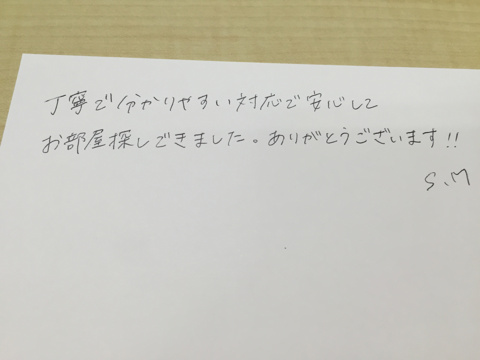 丁寧で分かりやすい対応で安心して
お部屋探しできました。ありがとうございます!!
S.M